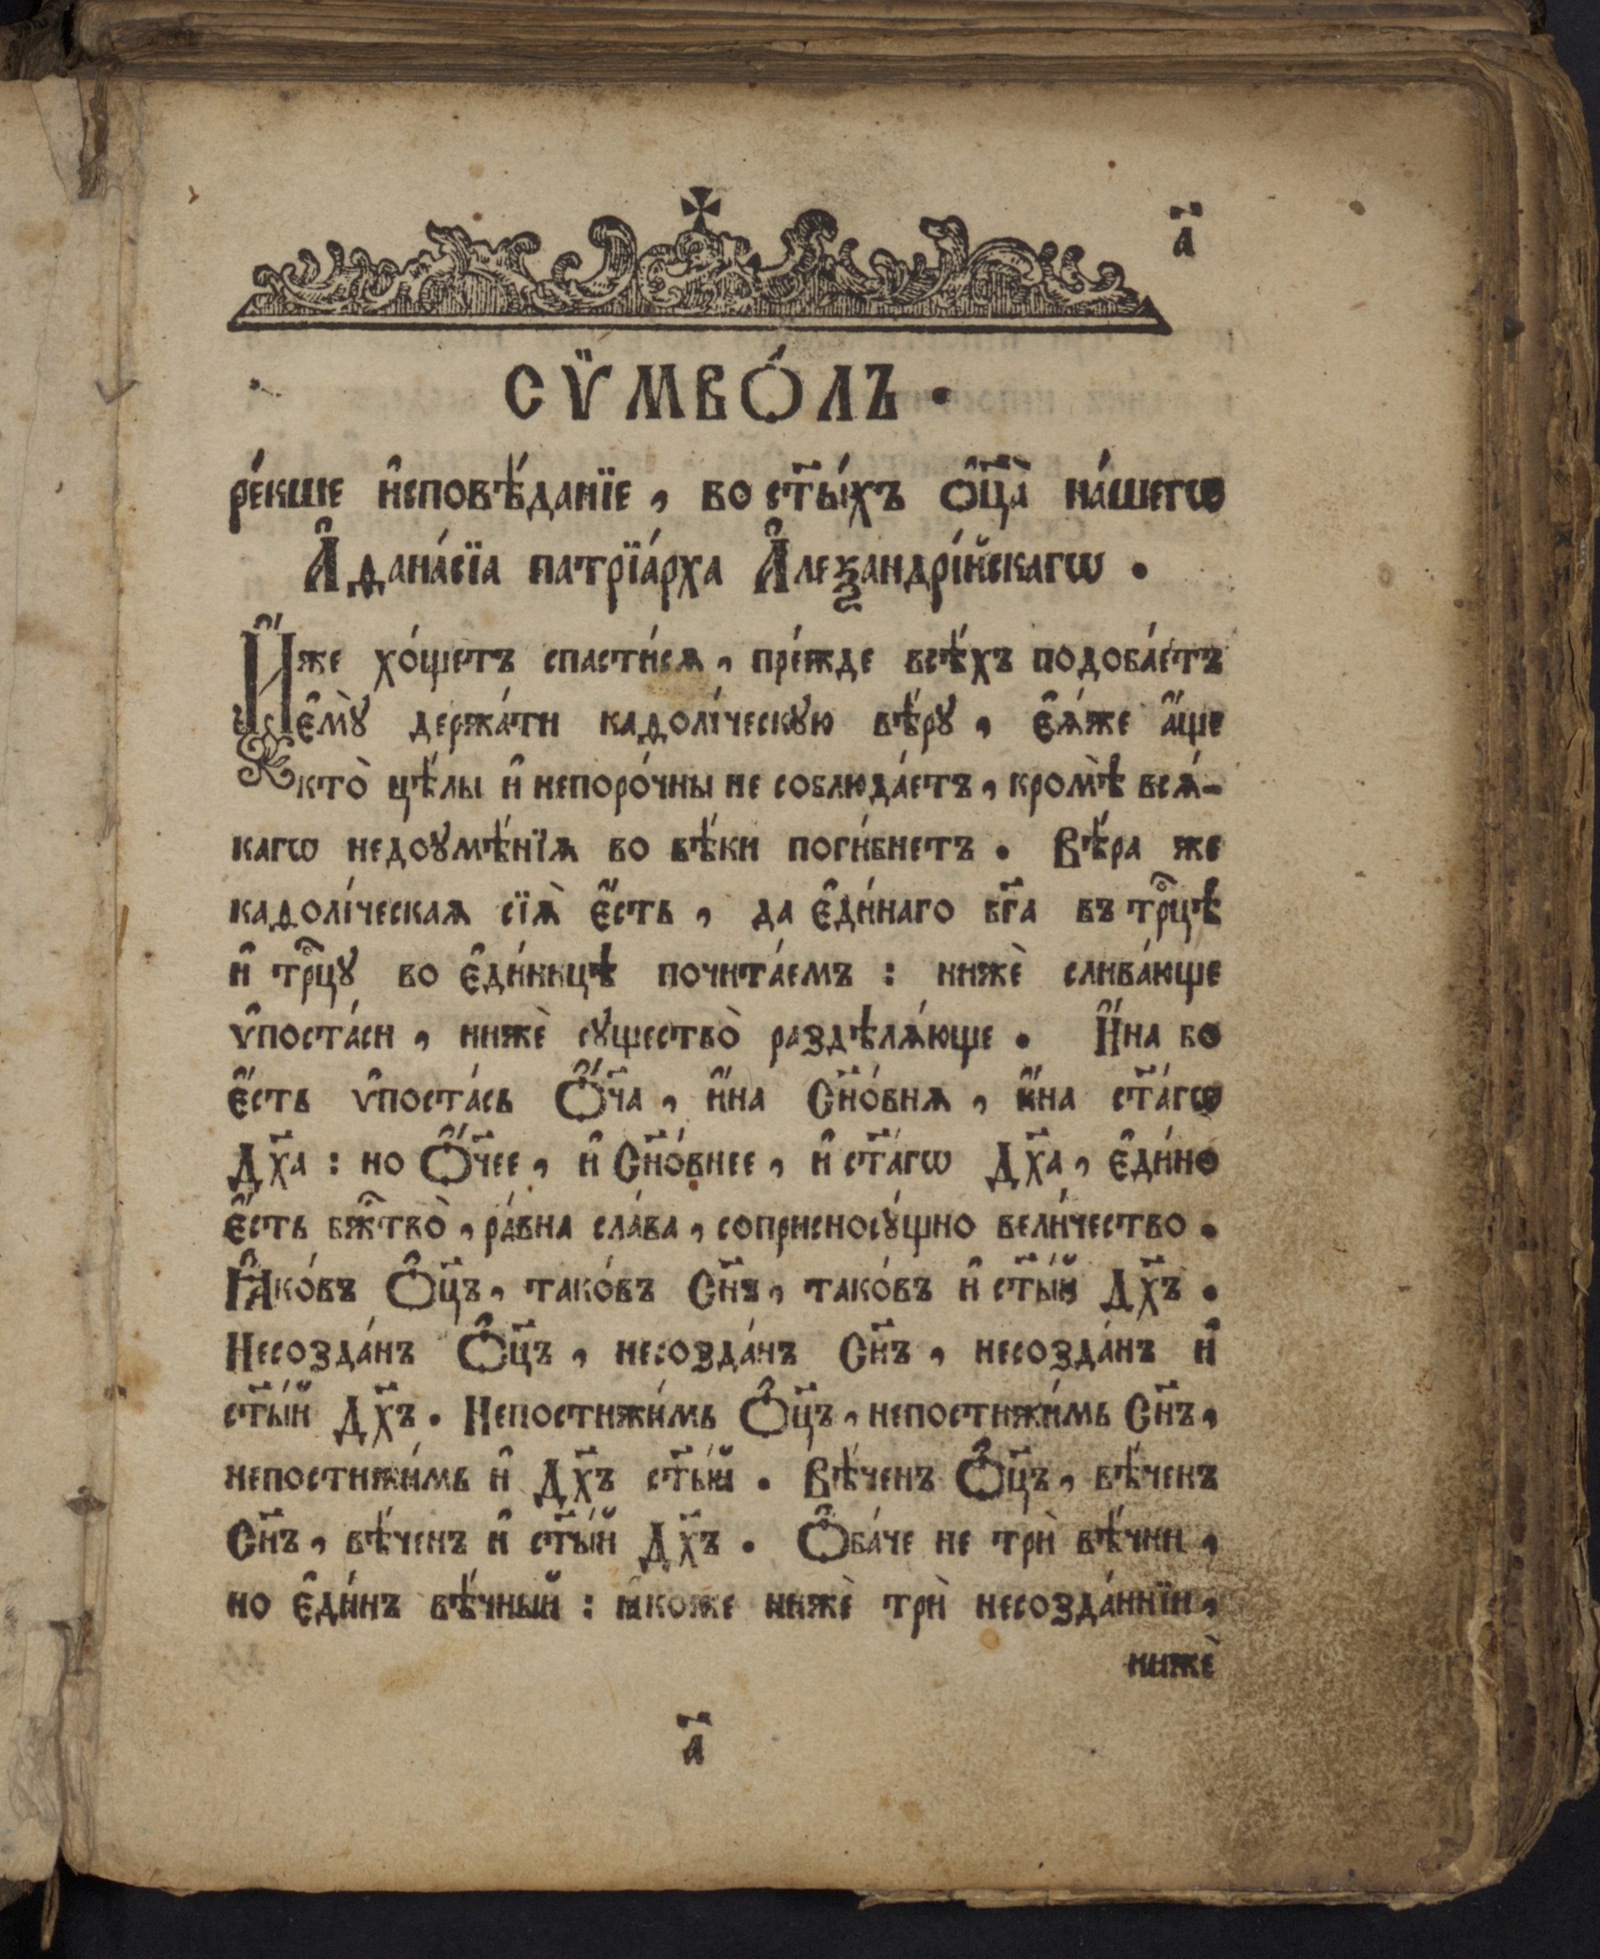 а҃
СѴ̈МВО́ЛЪ.
ре́кше и҆сповѣ́данїе, во ст҃ы́хъ ѻ҆ц҃а̀ на́шегѡ
А҆ѳана́сїа патрїа́рха А҆леѯандрі́йскагѡ.
И҆́же хо́щетъ спасти́сѧ, пре́жде всѣ́хъ подоба́етъ
є҆мꙋ̀ держа́ти каѳолі́ческꙋю вѣ́рꙋ, є҆ѧ́же а҆́ще
кто̀ цѣ́лы и҆ непоро́чны не соблюда́етъ, кромѣ̀ всѧ́-
кагѡ недоꙋмѣ́нїѧ во вѣ́ки поги́бнетъ. Вѣ́ра же
каѳолі́ческаѧ сїѧ̀ є҆́сть, да є҆ди́наго бг҃а въ трⷪ҇цѣ
и҆ трⷪ҇цꙋ во є҆ди́ницѣ почита́емъ: нижѐ слива́юще
ѵ҆поста́си, нижѐ сꙋщество̀ раздѣлѧ́юще. И҆́на бо
є҆́сть ѵ҆поста́сь Ѻ҆́ч҃а, и҆́на Сн҃о́внѧ, и҆́на ст҃а́гѡ
Дх҃а: но Ѻ҆́ч҃ее, и҆ Сн҃о́внее, и҆ ст҃а́гѡ Дх҃а, є҆ди́но
є҆́сть бжⷭ҇тво̀, ра́вна сла́ва, соприсносꙋ́щно вели́чество.
Ꙗ҆ко́въ Ѻ҆ц҃ъ, тако́въ Сн҃ъ, тако́въ и҆ ст҃ы́й Дх҃ъ.
Несозда́нъ Ѻ҆ц҃ъ, несозда́нъ Сн҃ъ, несозда́нъ и҆
ст҃ы́й Дх҃ъ. Непостижи́мь Ѻ҆ц҃ъ, непостижи́мь Сн҃ъ,
непостижи́мь и҆ Дх҃ъ ст҃ы́й. Вѣ́ченъ Ѻ҆ц҃ъ, вѣ́ченъ
Сн҃ъ, вѣ́ченъ и҆ ст҃ы́й Дх҃ъ. Ѻ҆ба́че не трѝ вѣ́чни,
но є҆ди́нъ вѣ́чный: ꙗ҆́коже нижѐ трѝ несозда́ннїи,
нижѐ
а҃